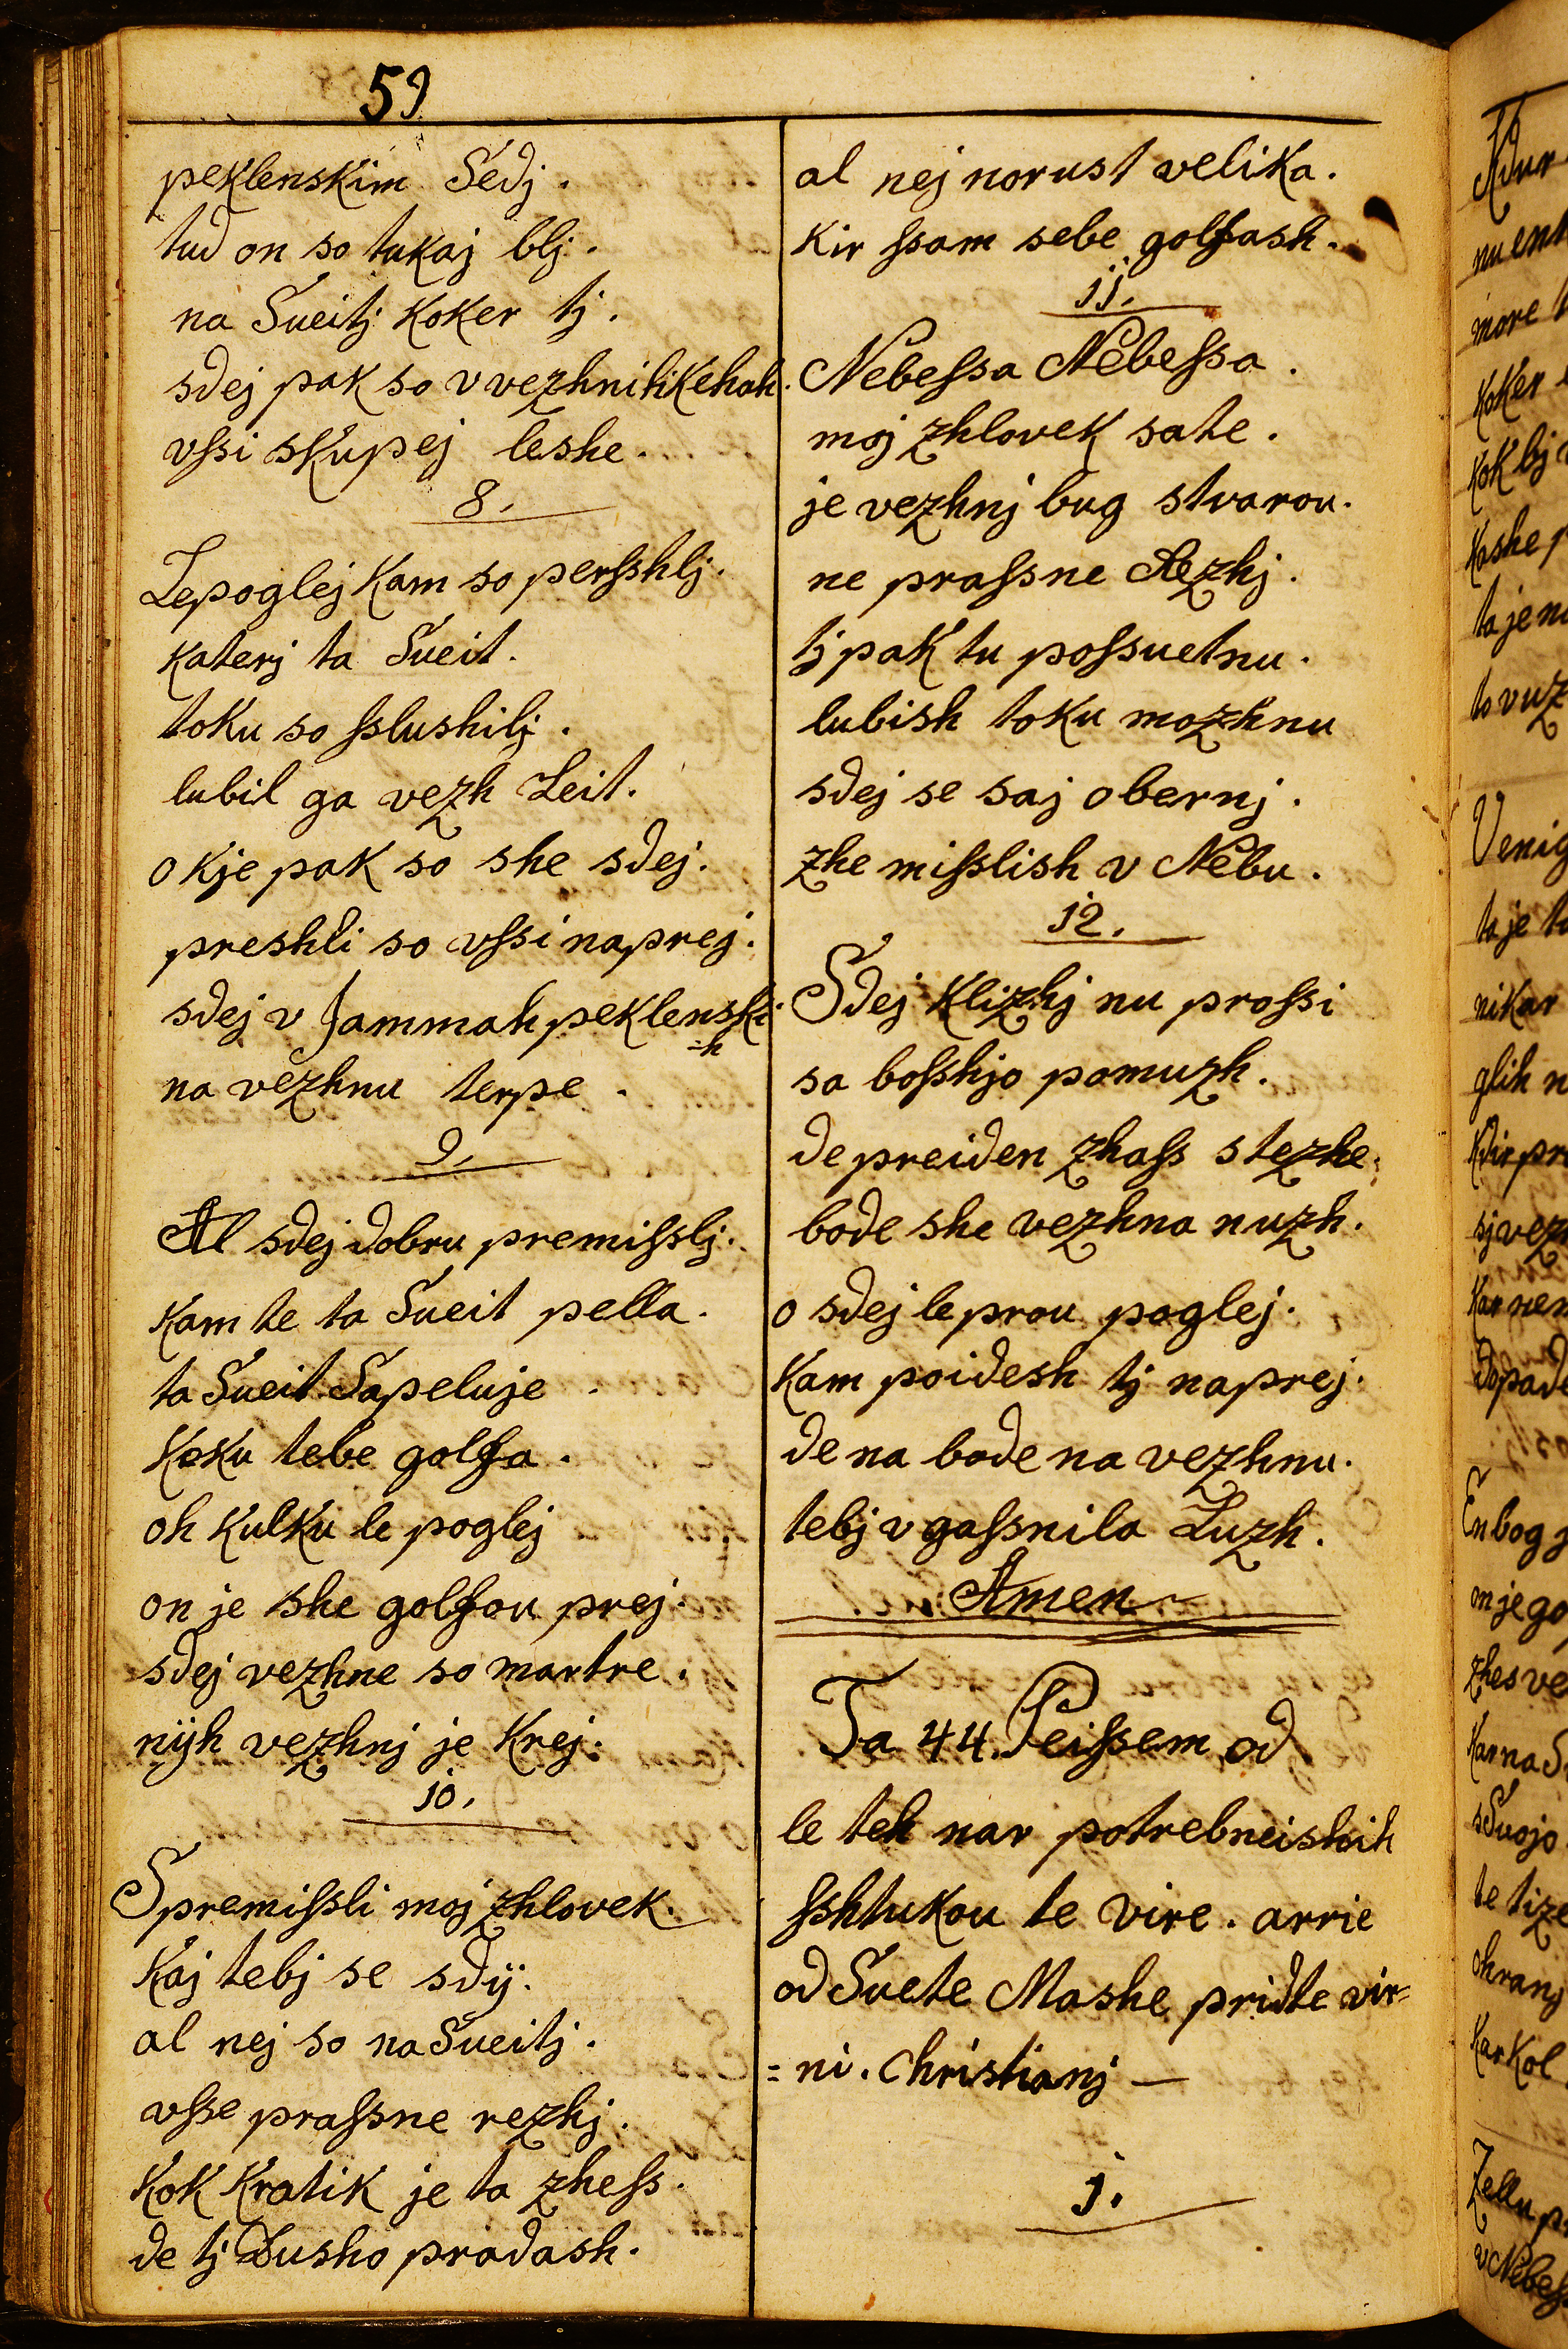 59
peklenskim Sedj.
tud on so tukaj blj.
na Sueitj koker tj.
sdej pak so v vezhnih kehah.
vſsi skupej leshe.
8.
Lepoglej kam so perſshlj.
katerj ta Sueit.
toku so ſslushilj.
lubil ga vezh Leit.
o kje pak so she sdej.
preshli so vſsi naprej.
sdej v Jammah peklenski
=h
na vezhnu terpe.
9.
Al sdej dobru premiſslj.
kam te ta Sueit pella.
ta Sueit Sapeluje.
koku tebe golfa.
oh kulku le poglej
on je she golfou prej.
sdej vezhne so martre.
nijh vezhnj je krej.
10.
Spremiſsli moj zhlovek.
kaj tebj se sdij.
al nej so na Sueitj.
vſse praſsne rezhj.
kok kratik je ta zheſs.
de tj Dusho pradash.
al nej norust velika.
kir ſsam sebe golfash.
11.
Nebeſsa Nebeſsa.
moj zhlovek sate.
je vezhnj bug stvarou.
ne praſsne Rezhj.
tj pak tu poſsuetnu.
lubish toku mozhnu
sdej se saj obernj.
zhe miſslish v Nebu.
12.
Sdej klizhj nu proſsi
sa boſshjo pomuzh.
de preiden zhaſs stezhe.
bode she vezhna nuzh.
o sdej le prou poglej.
kam poidesh tj naprej.
de na bode na vezhnu.
tebj vgaſsnila Luzh.
Amen
Ta 44. Peiſsem od
le teh nar potrebneishih
ſshtukou te vire. arrie
od Suete Mashe pridte vir=
=ni. Christianj —
1.